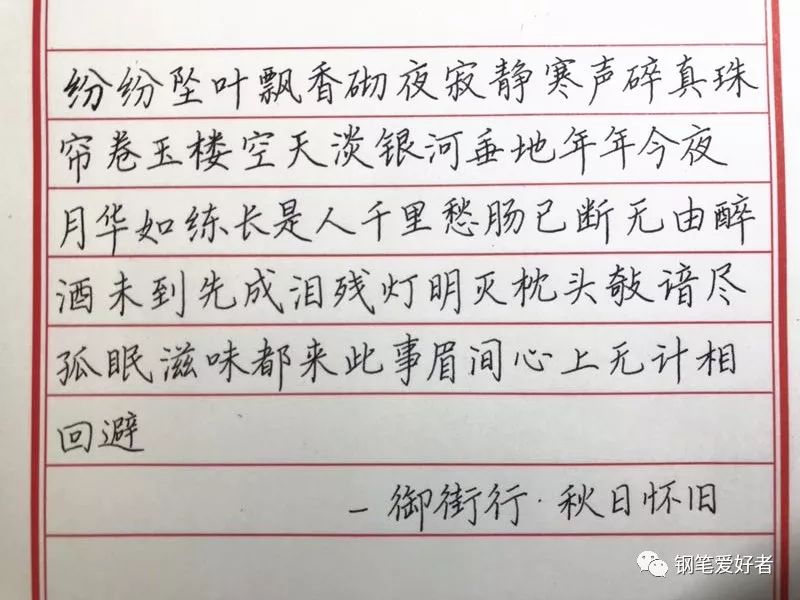 纷纷坠叶飘香砌夜寂静寒声碎真珠
帘卷玉楼空天淡银河垂地年年今夜
月华如练长是人千里愁肠已断无由醉
酒未到先成泪残灯明灭枕头敧谙尽
孤眠滋味都来此事眉间心上无计相
回避
–御街行·秋日怀旧
钢笔爱好者